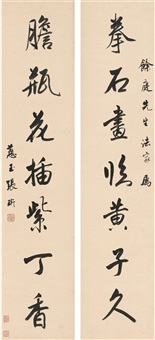 餘庭先生法家屬
拳石畫臨黃子久
膽瓶花插紫丁香
蕙玉張珩